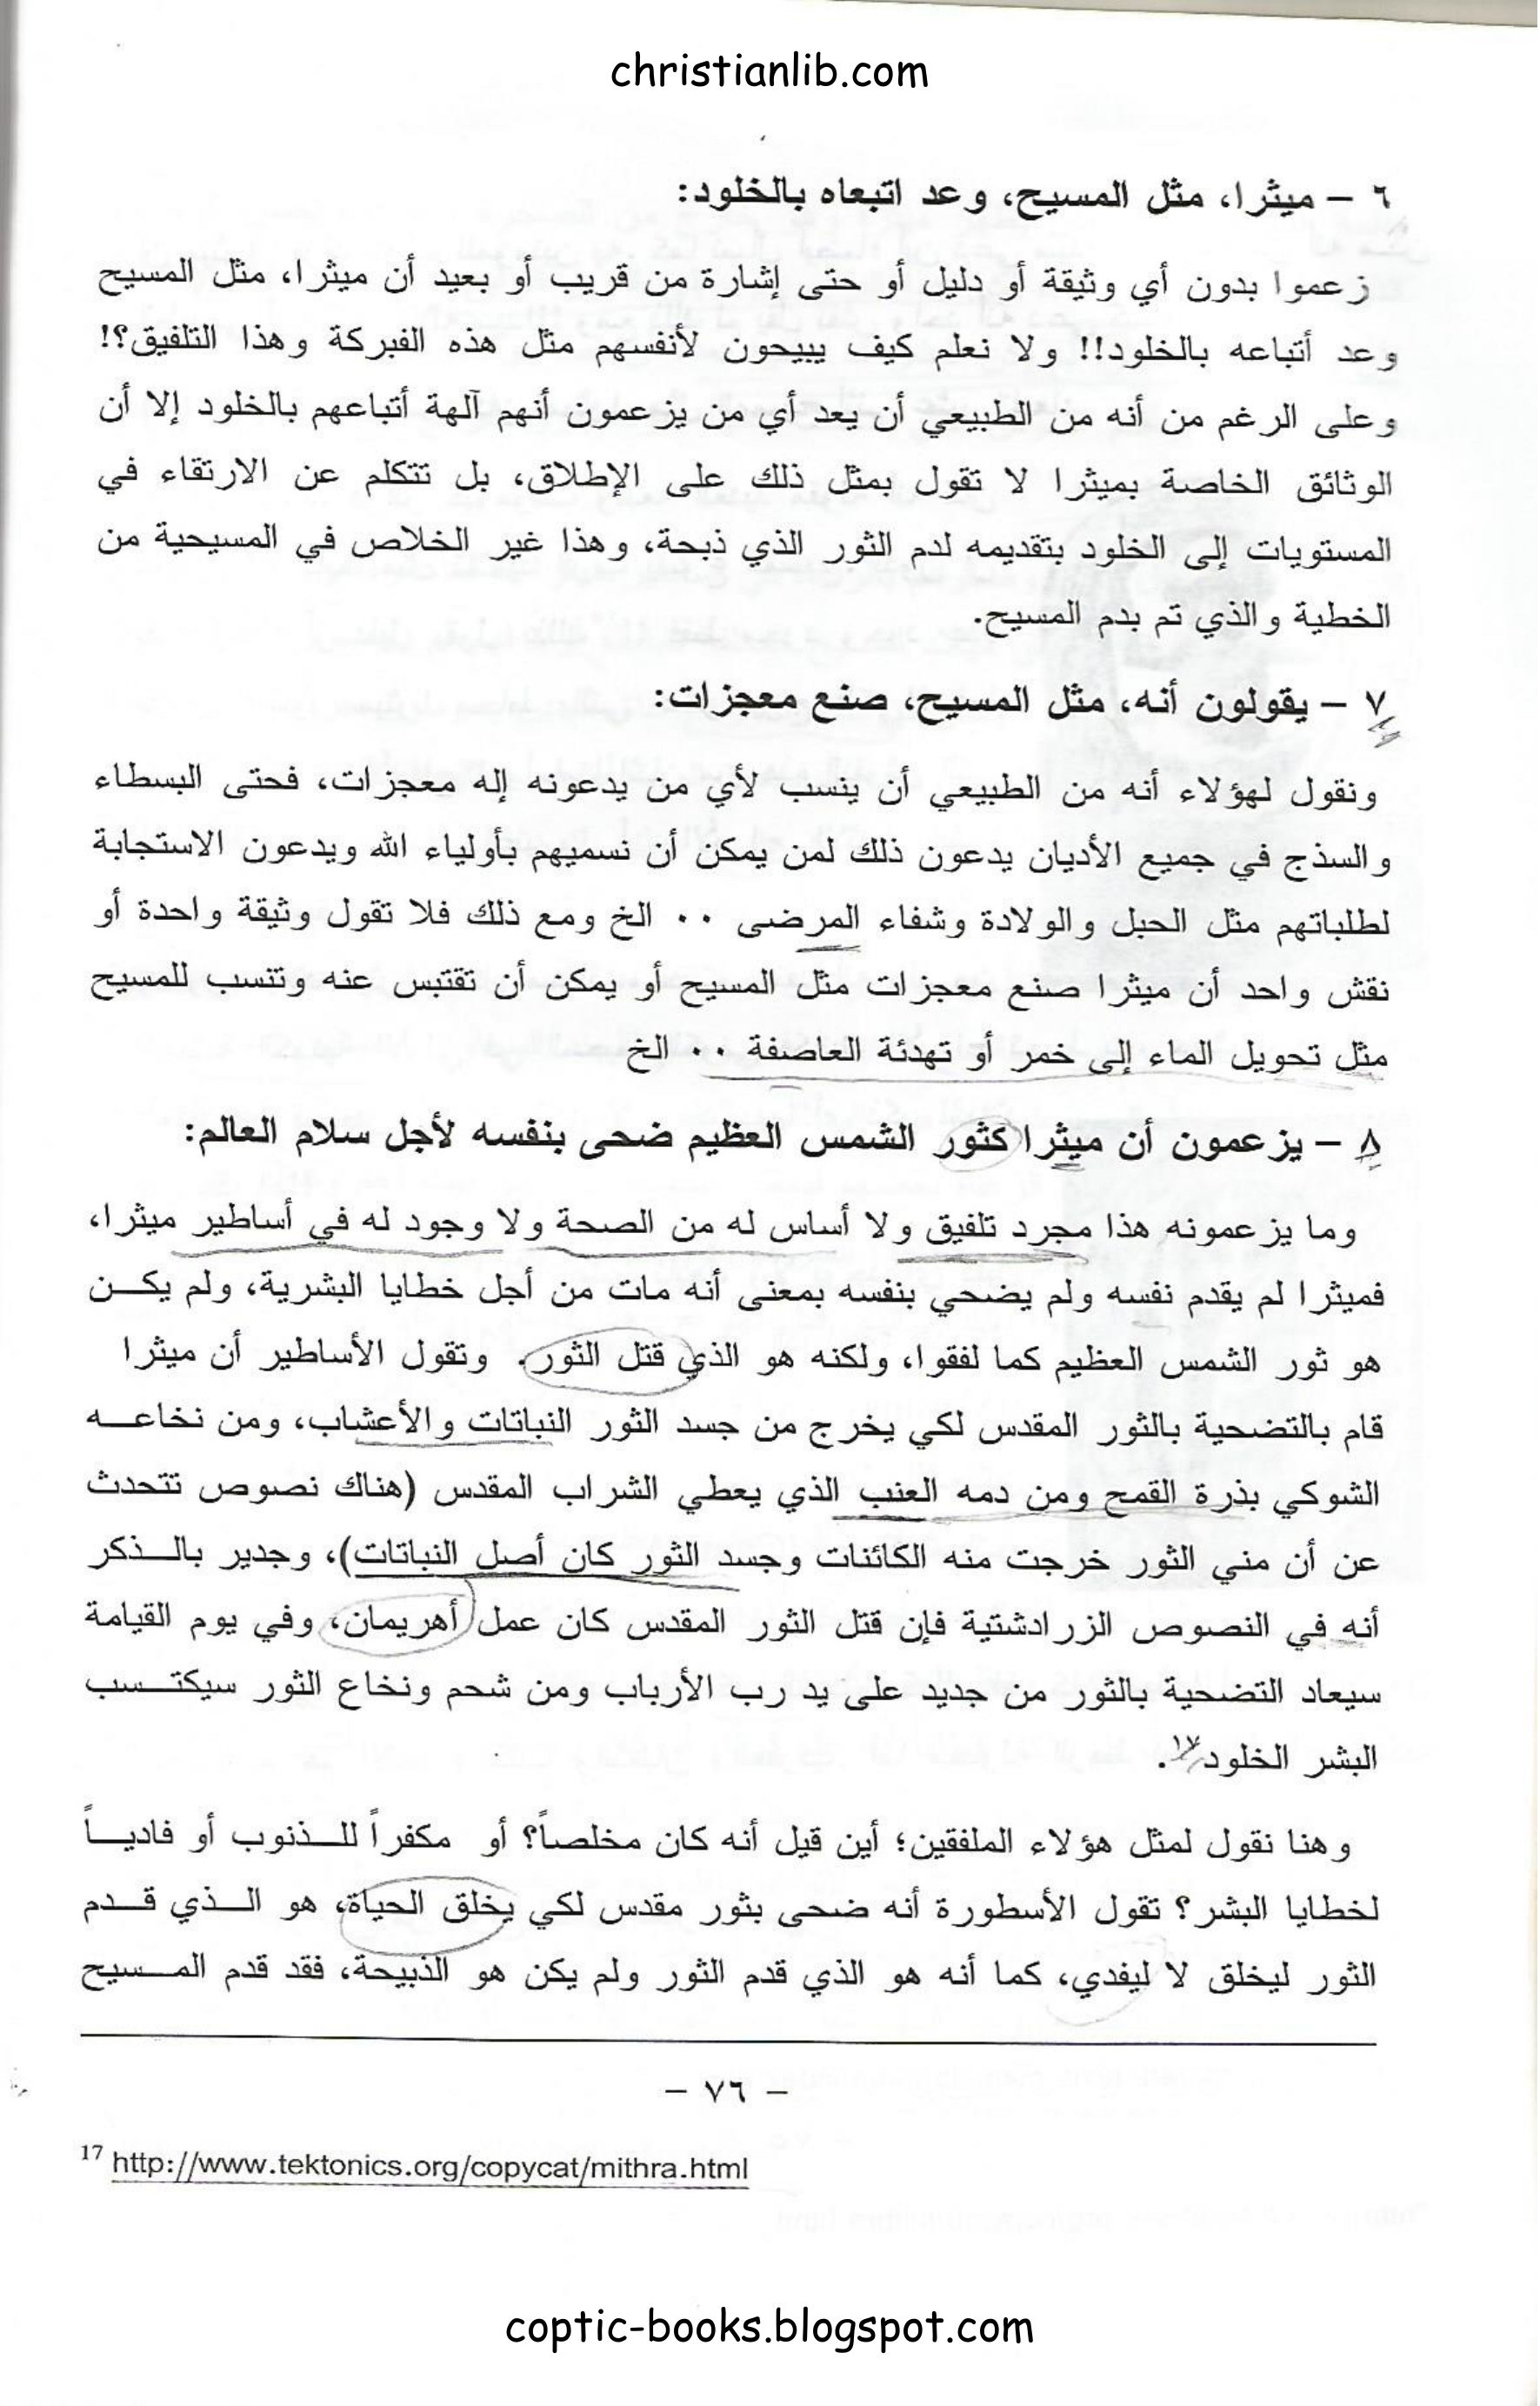 christianlib.com
٦ – ميثرا، مثل المسيح، وعد اتبعاه بالخلود:
زعموا بدون أي وثيقة أو دليل أو حتى إشارة من قريب أو بعيد أن ميثرا، مثل المسيح
وعد أتباعه بالخلود!! ولا نعلم كيف يبيحون لأنفسهم مثل هذه الفبركة وهذا التلفيق؟!
وعلى الرغم من أنه من الطبيعي أن يعد أي من يزعمون أنهم آلهة أتباعهم بالخلود إلا أن
الوثائق الخاصة بميثرا لا تقول بمثل ذلك على الإطلاق، بل تتكلم عن الارتقاء في
المستويات إلى الخلود بتقديمه لدم الثور الذي ذبحة، وهذا غير الخلاص في المسيحية من
الخطية والذي تم بدم المسيح.
٧ – يقولون أنه، مثل المسيح، صنع معجزات:
ونقول لهؤلاء أنه من الطبيعي أن ينسب لأي من يدعونه إله معجزات، فحتى البسطاء
والسذج في جميع الأديان يدعون ذلك لمن يمكن أن نسميهم بأولياء الله ويدعون الاستجابة
لطلباتهم مثل الحبل والولادة وشفاء المرضى ٠٠ الخ ومع ذلك فلا تقول وثيقة واحدة أو
نقش واحد أن ميثرا صنع معجزات مثل المسيح أو يمكن أن تقتبس عنه وتنسب للمسيح
مثل تحويل الماء إلى خمر أو تهدئة العاصفة ٠٠ الخ
٨ – يزعمون أن ميثرا كثور الشمس العظيم ضحى بنفسه لأجل سلام العالم:
وما يزعمونه هذا مجرد تلفيق ولا أساس له من الصحة ولا وجود له في أساطير ميثرا،
فميثرا لم يقدم نفسه ولم يضحي بنفسه بمعنى أنه مات من أجل خطايا البشرية، ولم يكــن
هو ثور الشمس العظيم كما لفقوا، ولكنه هو الذي قتل الثور. وتقول الأساطير أن ميثرا
قام بالتضحية بالثور المقدس لكي يخرج من جسد الثور النباتات والأعشاب، ومن نخاعــه
الشوكي بذرة القمح ومن دمه العنب الذي يعطي الشراب المقدس (هناك نصوص تتحدث
عن أن مني الثور خرجت منه الكائنات وجسد الثور كان أصل النباتات)، وجدير بالــذكر
أنه في النصوص الزرادشتية فإن قتل الثور المقدس كان عمل أهريمان، وفي يوم القيامة
سيعاد التضحية بالثور من جديد على يد رب الأرباب ومن شحم ونخاع الثور سيكتــسب
البشر الخلود١٧.
وهنا نقول لمثل هؤلاء الملفقين؛ أين قيل أنه كان مخلصاً؟ أو مكفراً للــذنوب أو فاديــاً
لخطايا البشر؟ تقول الأسطورة أنه ضحى بثور مقدس لكي يخلق الحياة، هو الــذي قــدم
الثور ليخلق لا ليفدي، كما أنه هو الذي قدم الثور ولم يكن هو الذبيحة، فقد قدم المــسيح
– ٧٦ –
17 http://www.tektonics.org/copycat/mithra.html
coptic-books.blogspot.com